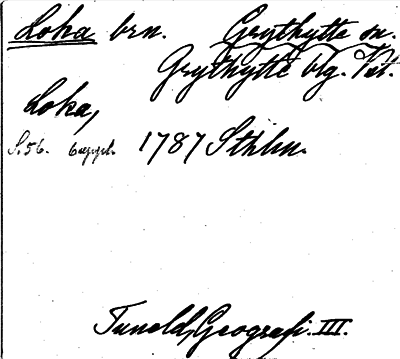 Loka brn. Grythytte sn.
Grythytte blg. Vstm.
Loka,
S. 56. 6 uppl. 1787 Sthlm.
Tuneld, Geografi. III.